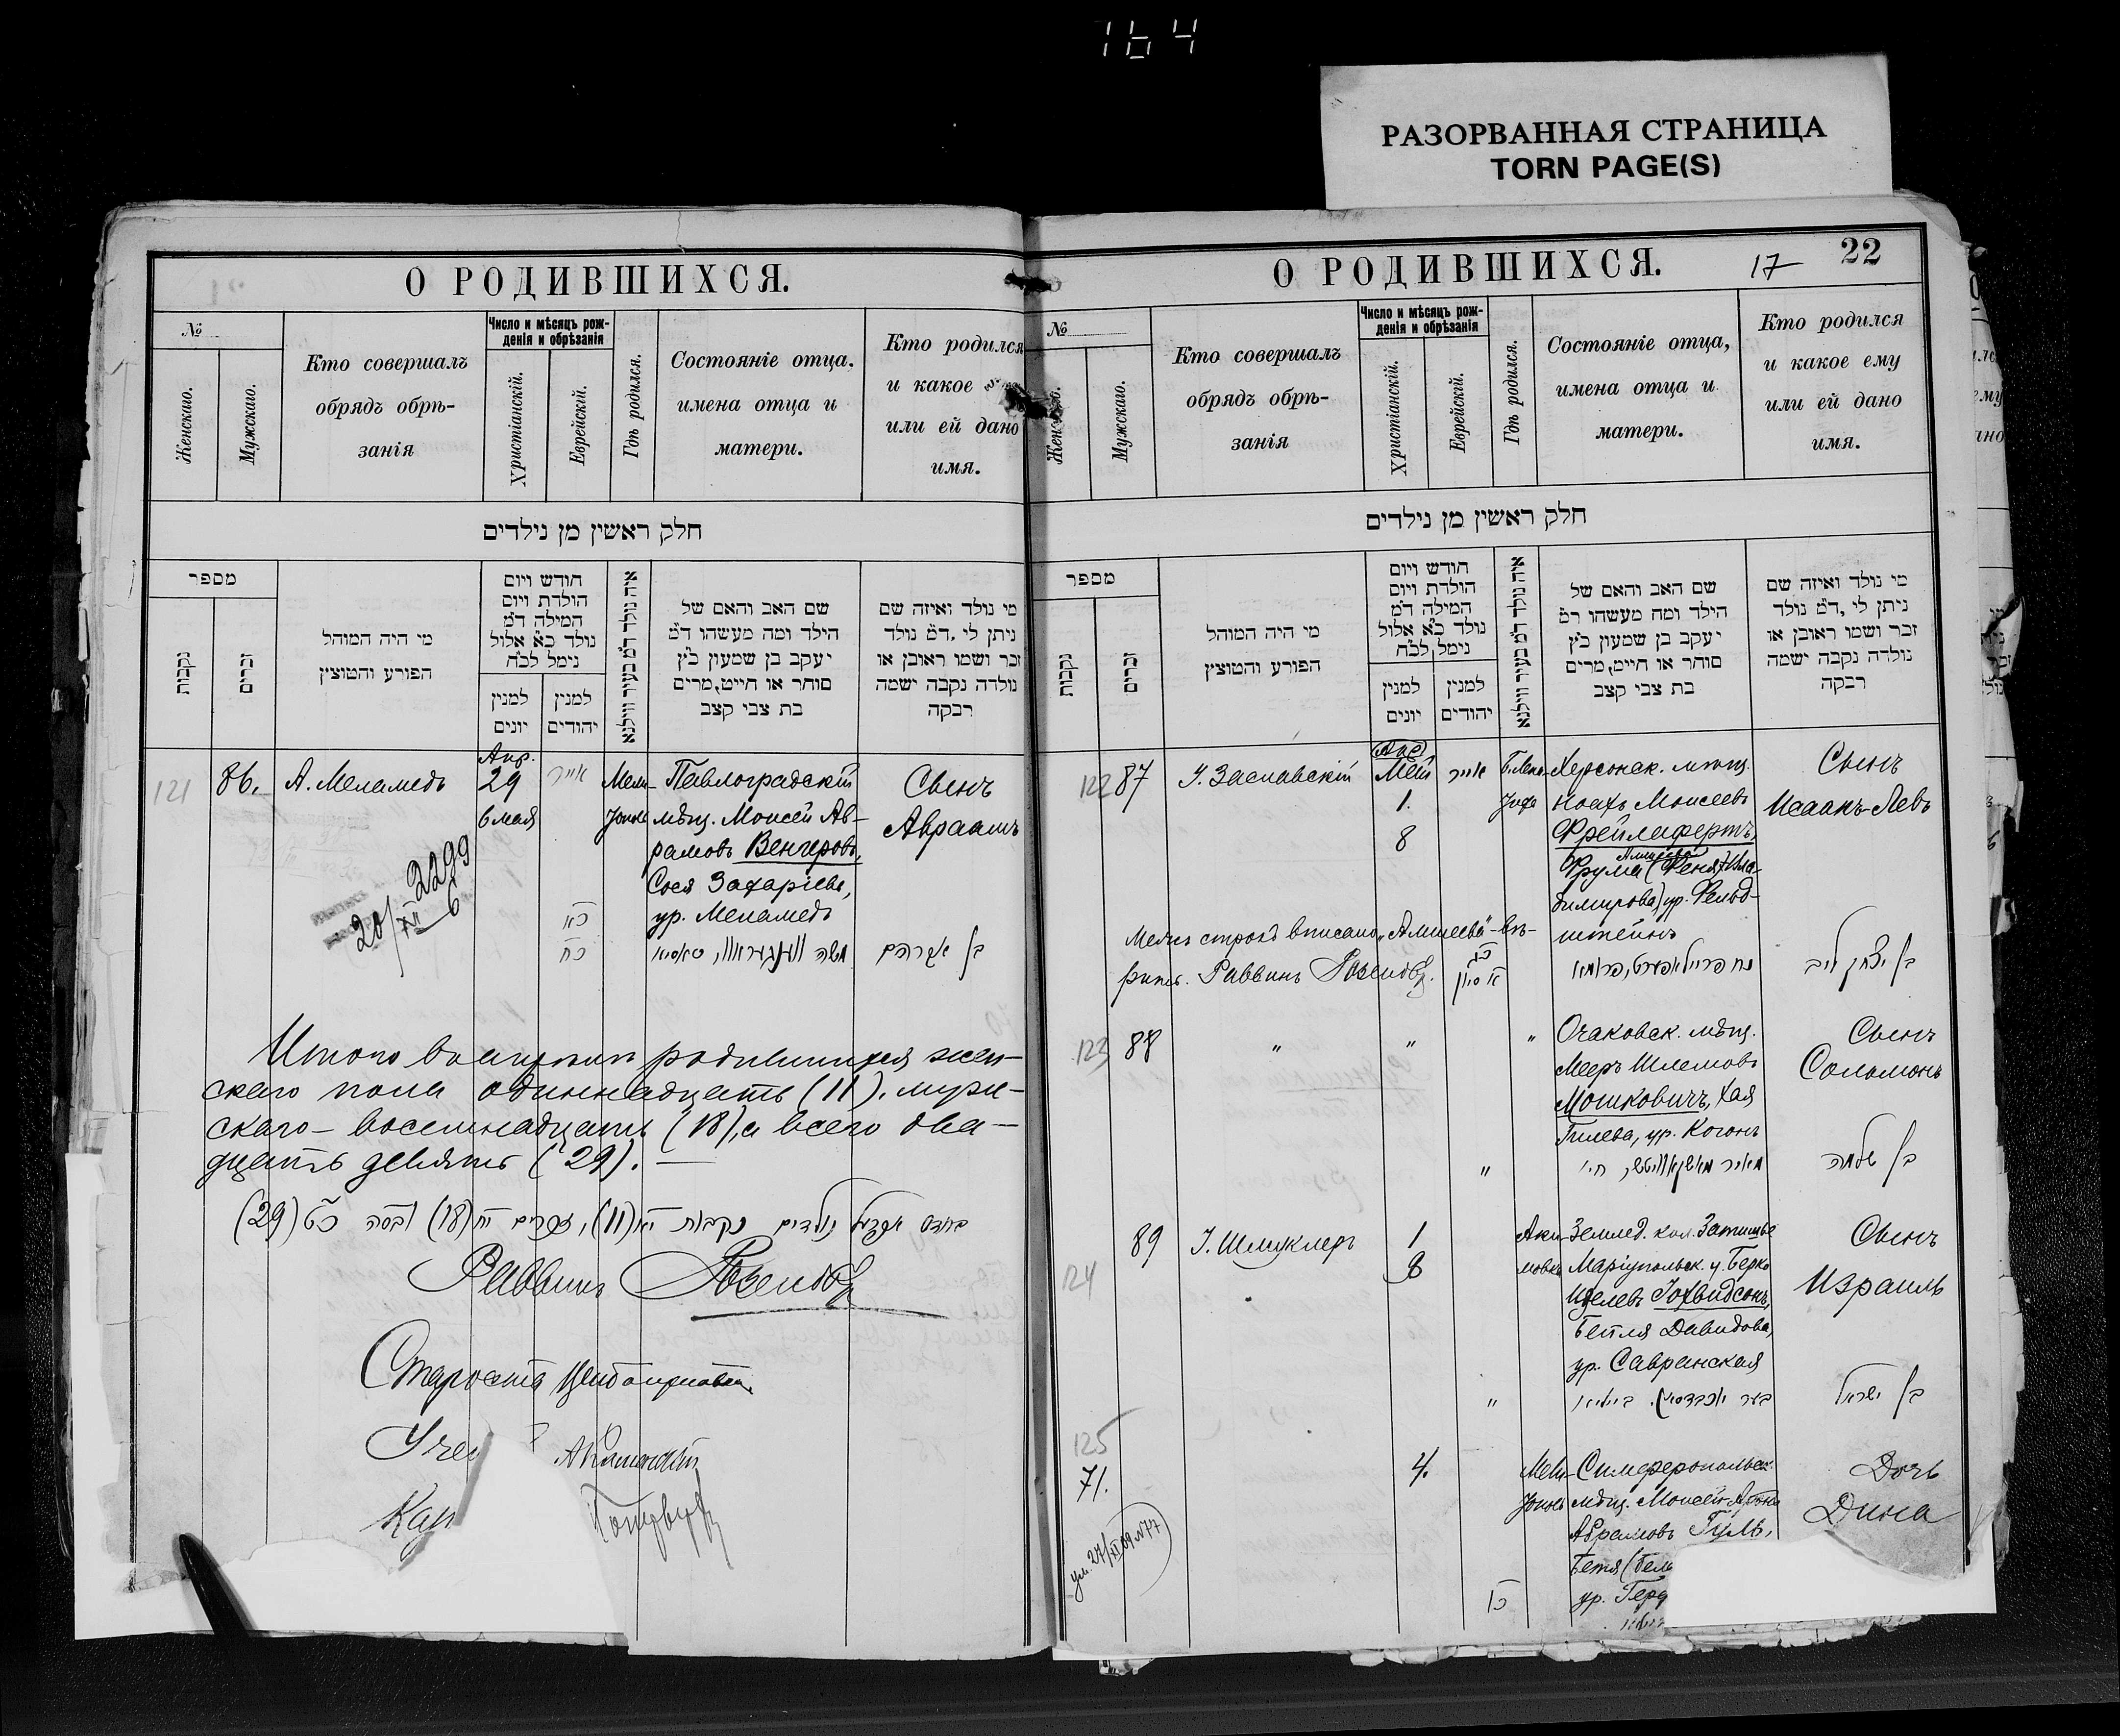 164
РАЗОРВАННАЯ СТРАНИЦА
TORN PAGE(S)
О РОДИВШИХСЯ.
№
Женскаго.
Мужскаго.
Кто совершалъ
обрядъ обрѣ-
занія
Число и мѣсяцъ рож-
денія и обрѣзанія
Христіанскій.
Еврейскій.
Гдѣ родился.
Состояніе отца.
имена отца и
матери.
Кто родился
и какое
или ей дано
имя.
חלק ראשין מן נילדים
מספר
נקבות
זכרים
מי היה המוהל
הפורע והמוצץ
חודש ויום
הולדת ויום
המילה ד״מ
נולד כ״א אלול
נימל לכ״ח
למנין
יונים
למנין
יהודים
איה נולד ד״מ בעיר ווילנא
שם האב והאם של
הילד ומה מעשהו ד״מ
יעקב בן שמעון כ״ץ
סוחר או חייט, מרים
בת צבי קצב
מי נולד ואיזה שם
ניתן לי, ד״מ נולד
זכר ושמו ראובן או
נולדה נקבה ישמה
רבקה
121
86.
А. Меламедъ
Апр.
29
6 мая
אייר
כא
כח
Мели-
тополь
Павлоградскій
мѣщ. Моисей Ав-
рамовъ Венгеровъ,
Сося Захаріева,
ур. Меламедъ
Сынъ
Авраамъ
בן אברהם
2299
20/XII 6
Итого въ апрѣлѣ родившихся жен-
скаго пола одиннадцать (11), муж-
скаго – восемнадцать (18), а всего два-
дцать девять (29). —
בחודש אפריל נולדים נקבות יא (11), זכרים יח (18) ובסה כט (29)
Раввинъ
Староста
О РОДИВШИХСЯ.
17
22
№
Женскаго.
Мужскаго.
Кто совершалъ
обрядъ обрѣ-
занія
Число и мѣсяцъ рож-
денія и обрѣзанія
Христіанскій.
Еврейскій.
Гдѣ родился.
Состояніе отца,
имена отца и
матери.
Кто родился
и какое ему
или ей дано
имя.
חלק ראשין מן נילדים
מספר
נקבות
זכרים
מי היה המוהל
הפורע והמוצץ
חודש ויום
הולדת ויום
המילה ד״מ
נולד כ״א אלול
נימל לכ״ח
למנין
יונים
למנין
יהודים
איה נולד ד״מ בעיר ווילנא
שם האב והאם של
הילד ומה מעשהו ד״מ
יעקב בן שמעון כ״ץ
סוחר או חייט, מרים
בת צבי קצב
מי נולד ואיזה שם
ניתן לי, ד״מ נולד
זכר ושמו ראובן או
נולדה נקבה ישמה
רבקה
122
87
І. Заславскій
(Апр.)
Май
1.
8
אייר
כג
א סיון
Херсонск. мѣщ.
Ноахъ Моисеевъ
Фрейлафертъ,
Фрума (Феня) Вла-
димирова, ур. Фельд-
штейнъ
Сынъ
Исаакъ-Левъ
בן יצחק ליב
Между строкъ вписано „Алтеева“ вѣ-
рить. Раввинъ
123
88
"
"
"
"
Очаковск. мѣщ.
Мееръ Шлемовъ
Мошковичъ, Хая
Гилева, ур. Коганъ
Сынъ
Соломонъ
בן שלמה
124
89
І. Шмуклеръ
1
8
"
Аки-
мовка
Землед. кол. Затишье
Маріупольск. у. Берко
Ицелевъ Іохвидсонъ,
Бейля Давидова,
ур. Савранская
Сынъ
Израиль
בן ישראל
125
71.
ум. 27/XI 09 №77
4.
כו
Мели-
тополь
Симферопольск.
мѣщ. Моисей-Аронъ
Абрамовъ Гуль,
Бетя
ур.
Дочь
Дина